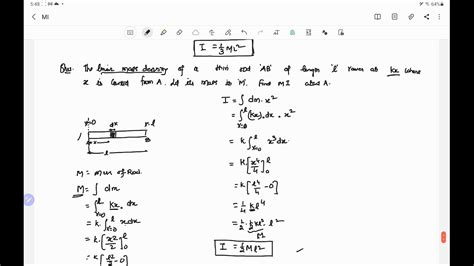 5:48
MI
I = 1/3 Ml²
Ques. The linear mass density of a thin rod 'AB' of length 'l' varies as kx where
x is counted from A. Let its mass is 'M'. Find MI about A.
x=0 dx x=l
x
B
l
M = mass of Rod.
M = ∫ dm
= ∫ₓ₌₀ˡ kx dx
= k ∫ₓ₌₀ˡ x dx
= k [x²/2]₀ˡ
= k [l²/2 - 0]
I = ∫ dm x²
= ∫ₓ₌₀ˡ (kx) dx x²
= k ∫ₓ₌₀ˡ x³ dx
= k [x⁴/4]₀ˡ
= k [l⁴/4 - 0]
= 1/4 k l⁴
= 1/2 · 1/2 kl² · l²
M
I = 1/2 Ml²